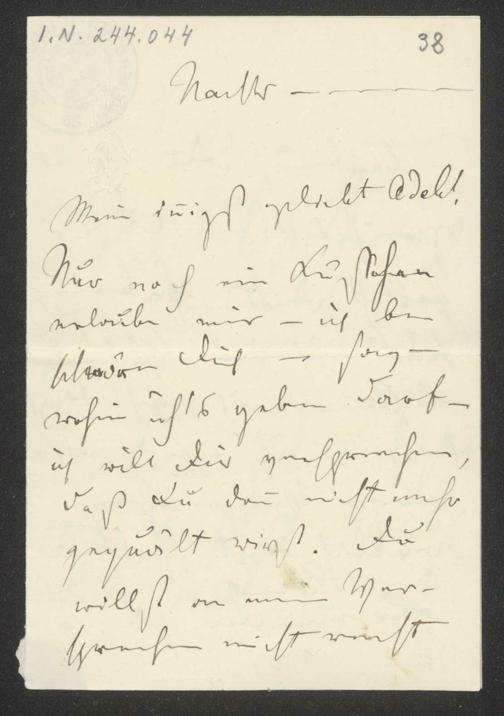 I.N. 244.044
38
Nachts —
Mein innigst geliebt Adele!
Nur noch ein Küßchen
erlaube mir – ich be
schwöre Dich – sag –
wohin ich's geben darf –
ich will Dir versprechen,
daß Du dan̄ nicht mehr
gequält wirst. Du
willst an mein Ver-
sprechen nicht recht